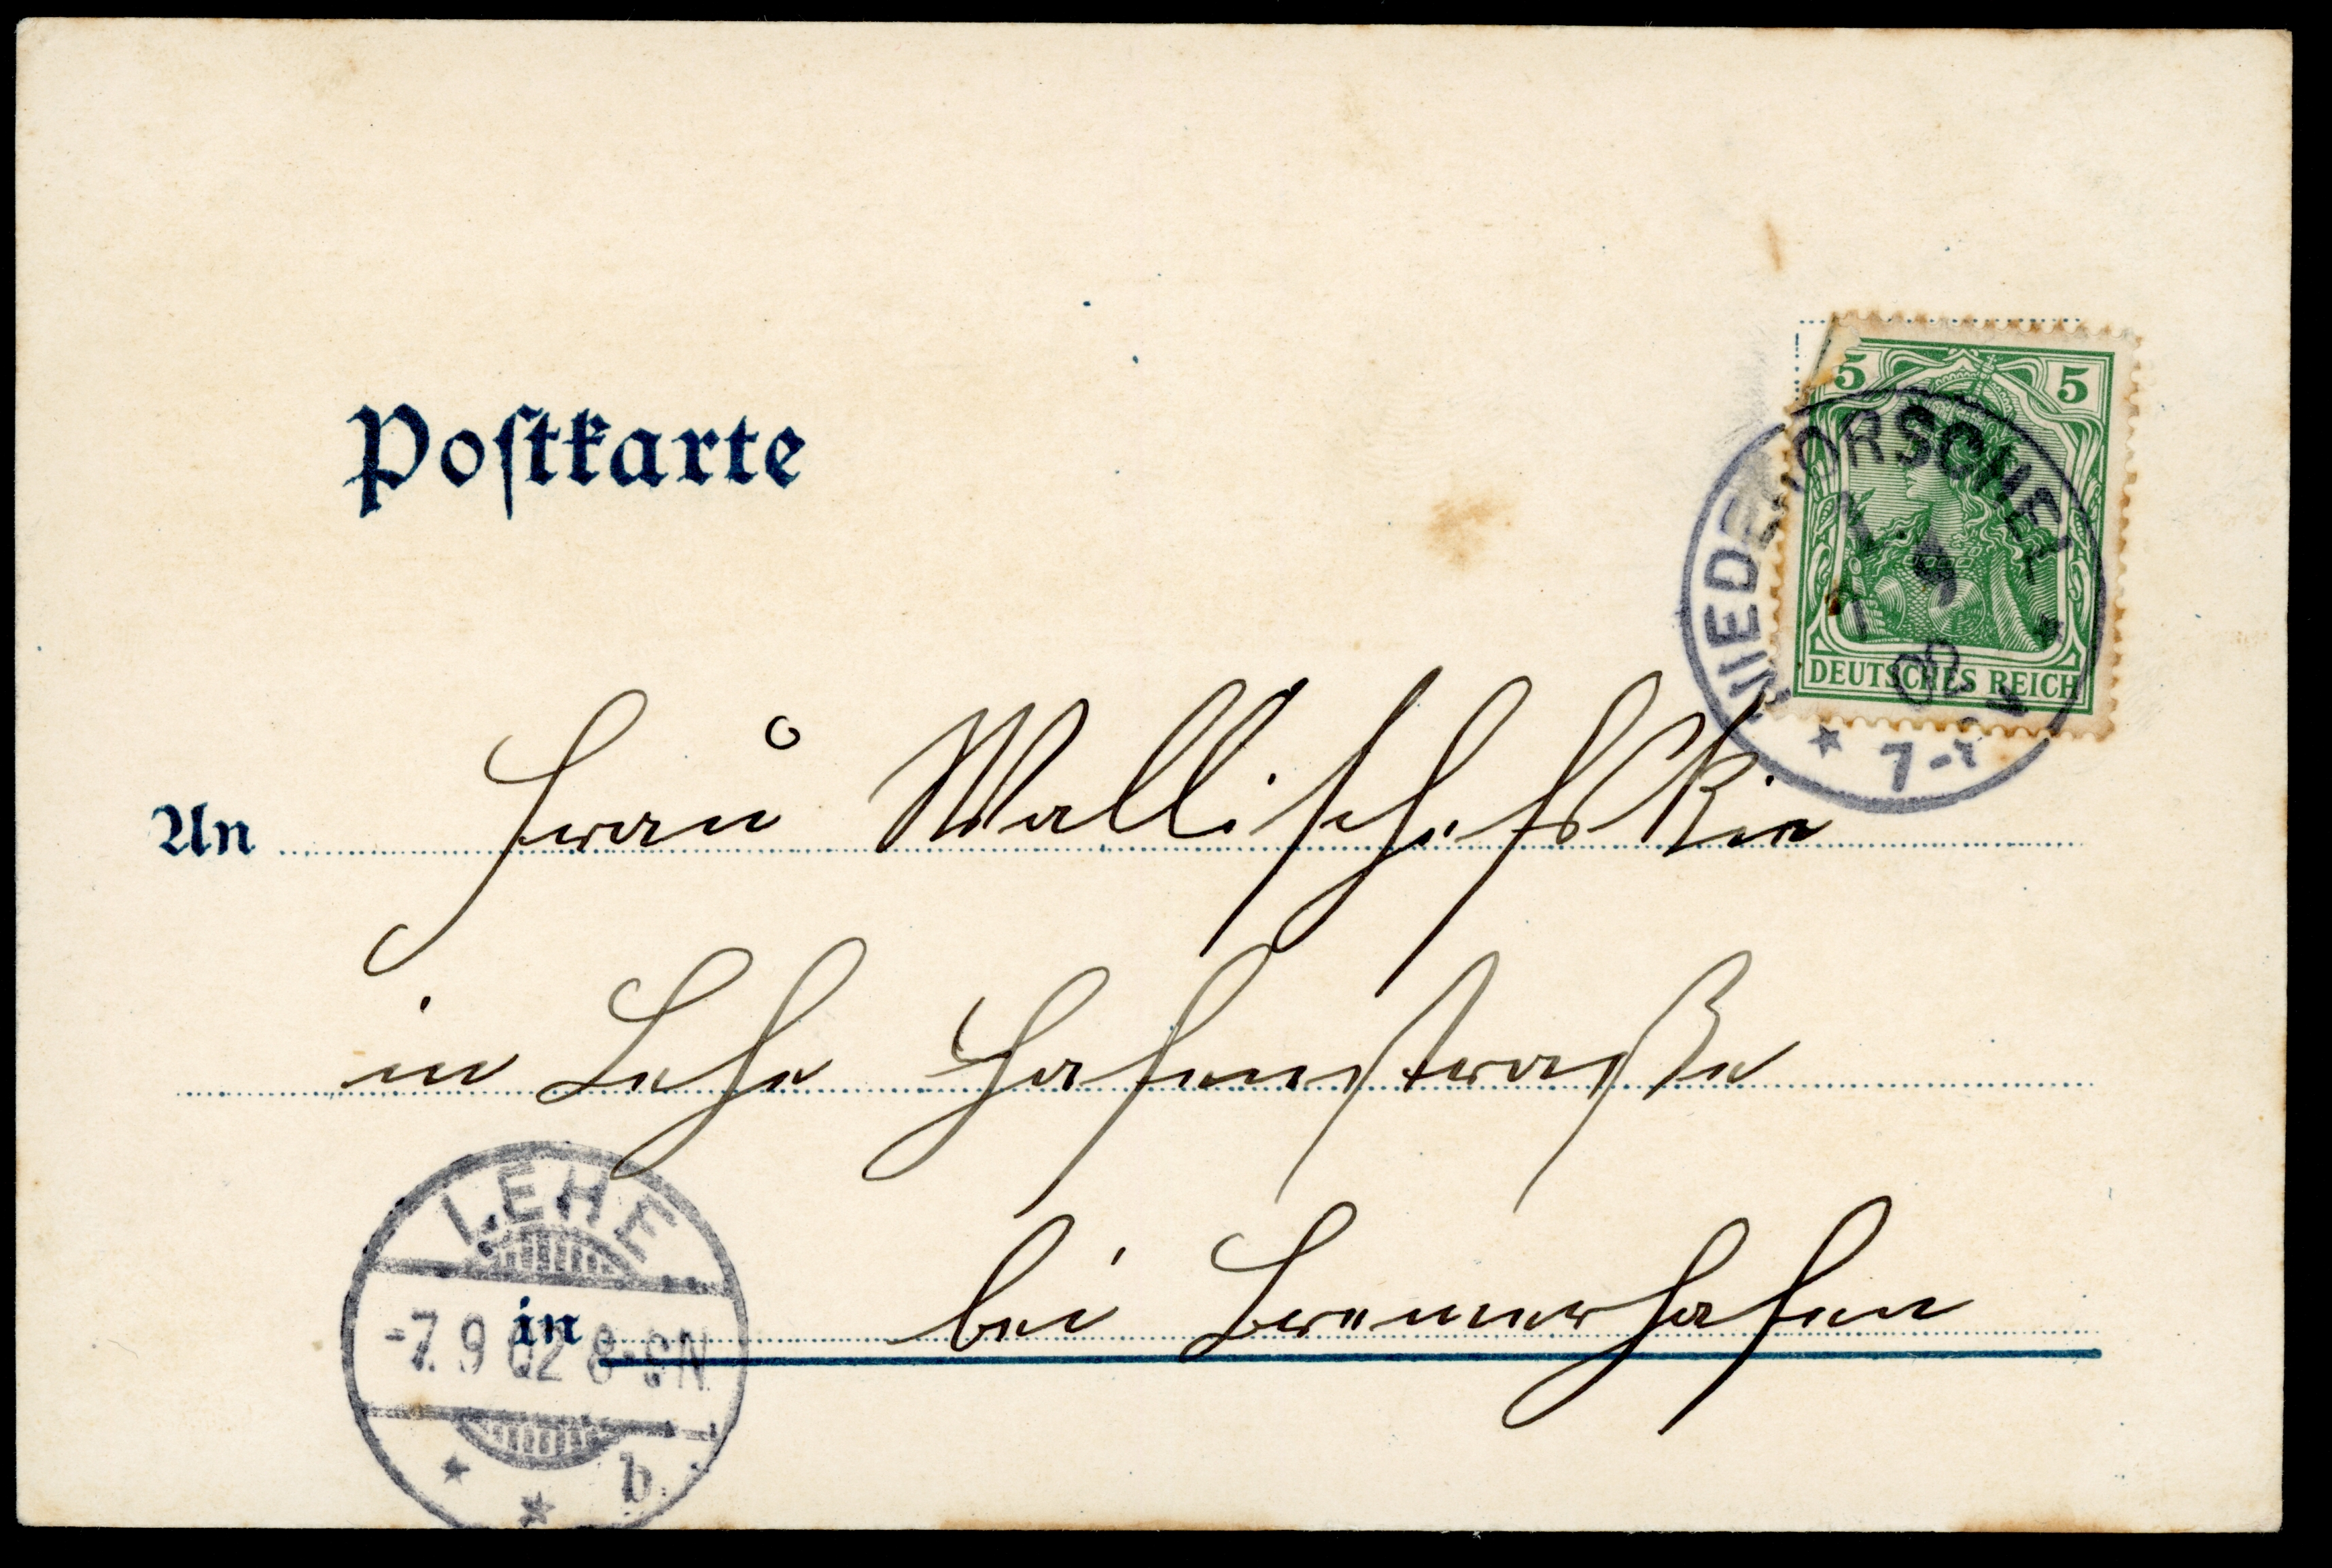 Postkarte
5 5
NIEDERORSCHEL
DEUTSCHES REICH
02
An Frau
in Lehe Hafenstraße
LEHE
-7.9 02 8-9N
in bei Bremerhafen
b.